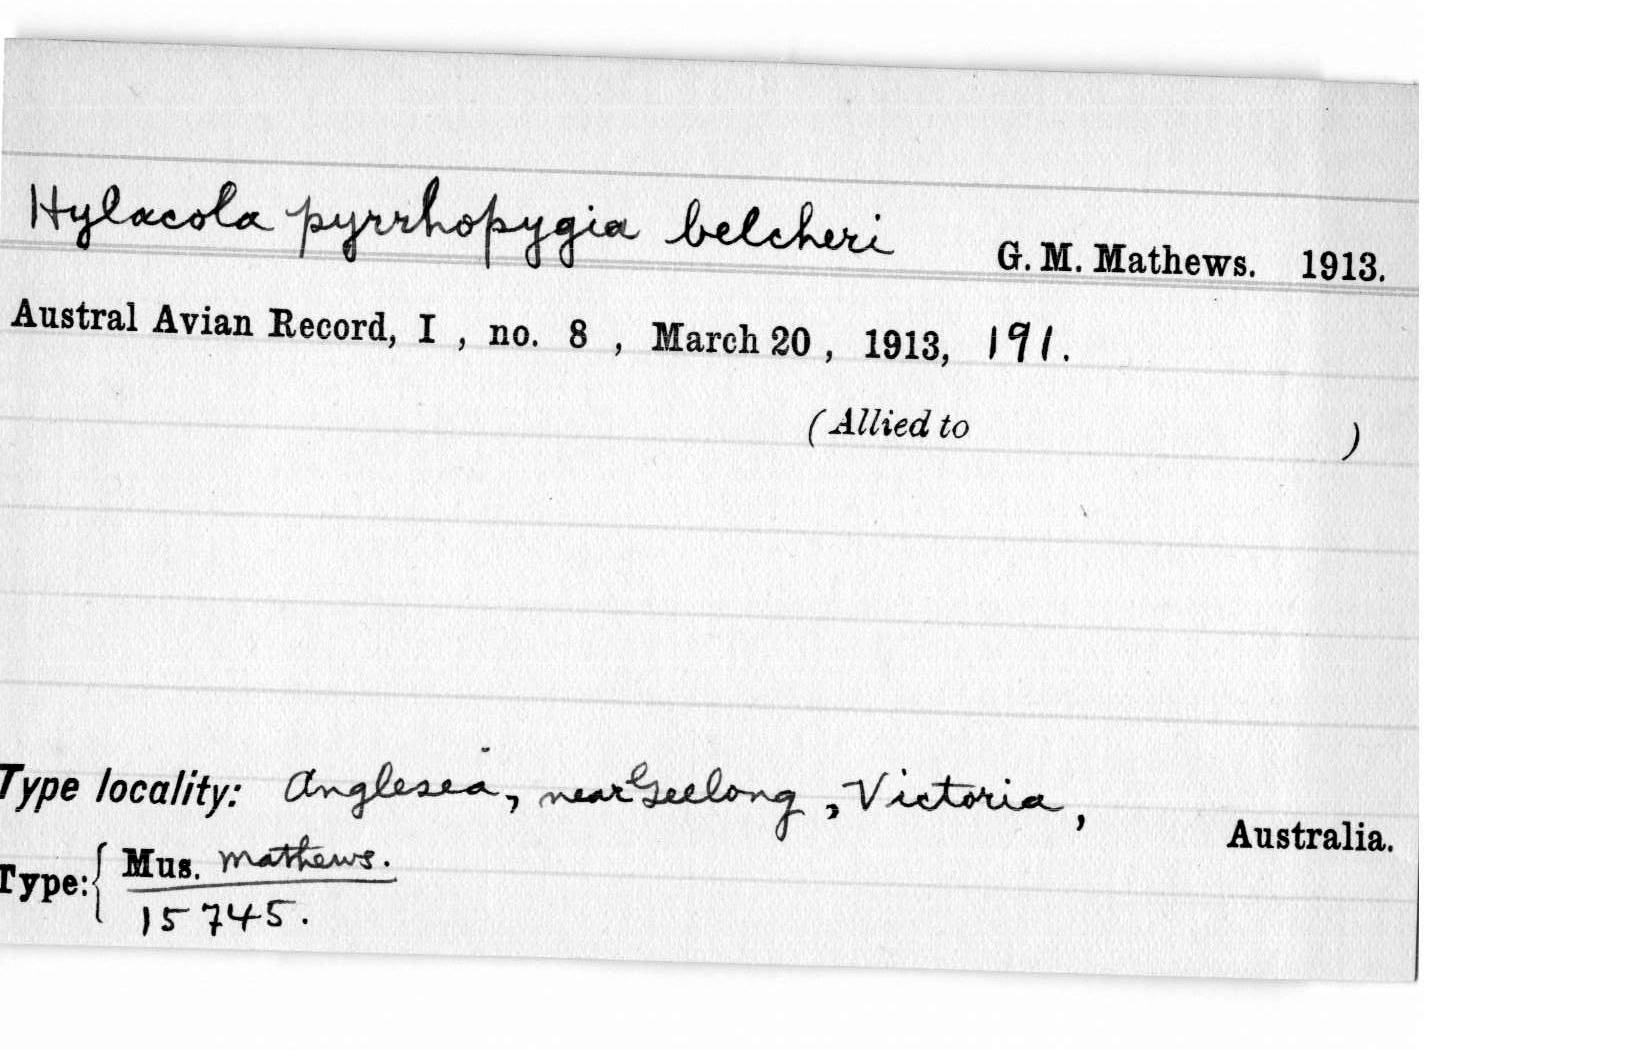 Hylacola pyrrhopygia belcheri G. M. Mathews. 1913.
Austral Avian Record, I , no. 8 , March 20 , 1913, 191.
(Allied to )
Type locality: Anglesea, near Geelong, Victoria, Australia.
Type: { Mus. Mathews.
15745.